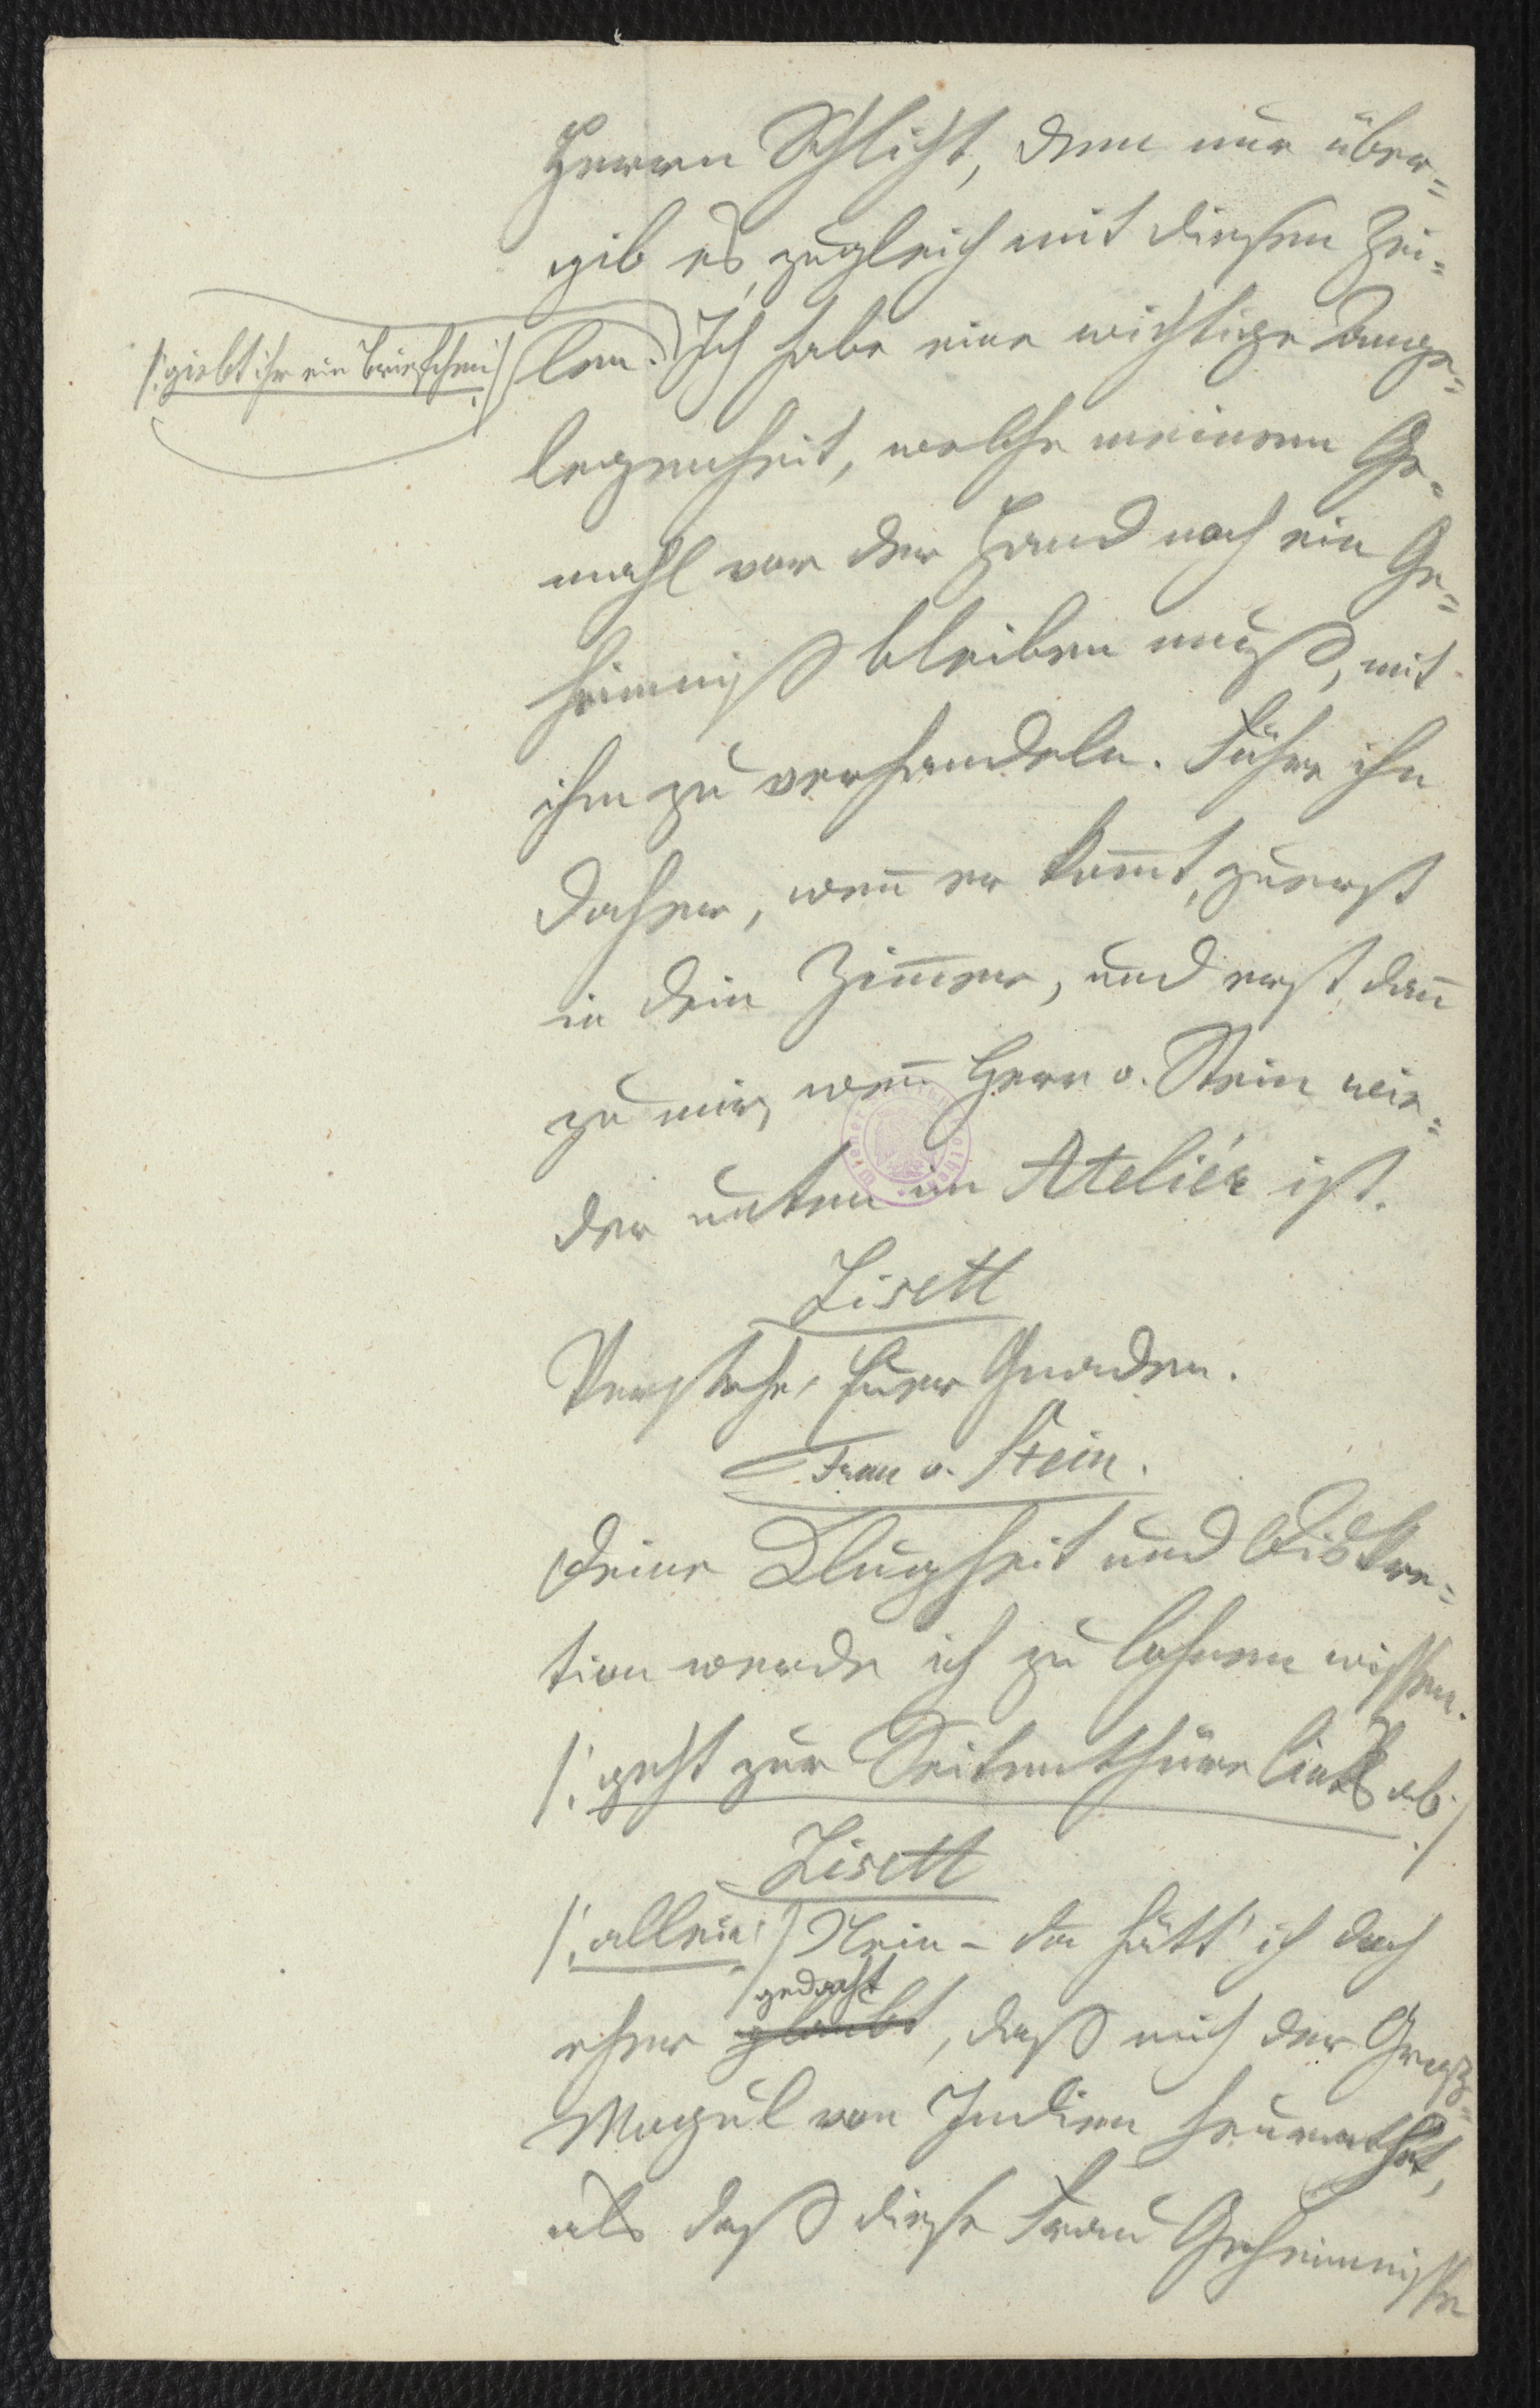 Herrn Schlicht, dem nur über=
gib es, zugleich mit diesen Zei=
/: giebt ihr ein Briefchen :/
len. Ich habe eine wichtige Ange=
legenheit, welche meinem Ge=
mahl vor der Hand noch ein Ge=
heimniß bleiben muß, mit
ihm zu verhandeln. Führe ihn
daher, wen̄ er kom̄t, zuerst
in dein Zim̄er, und erst dan̄
zu mir, wen̄ Herr v. Stein wie=
der unten im Atelier ist.
Lisett
Verstehe, Euer Gnaden.
Frau v. Stein.
Deine Klugheit und Diskre=
tion werde ich zu lohnen wissen.
/: geht zur Seitenthüre links ab :/
Lisett
/: allein :/ Nein – da hätt' ich doch
gedacht
eher glaubt, daß mich der Groß=
Mogul von Indien heurathet,
als daß diese Frau Geheimnisse